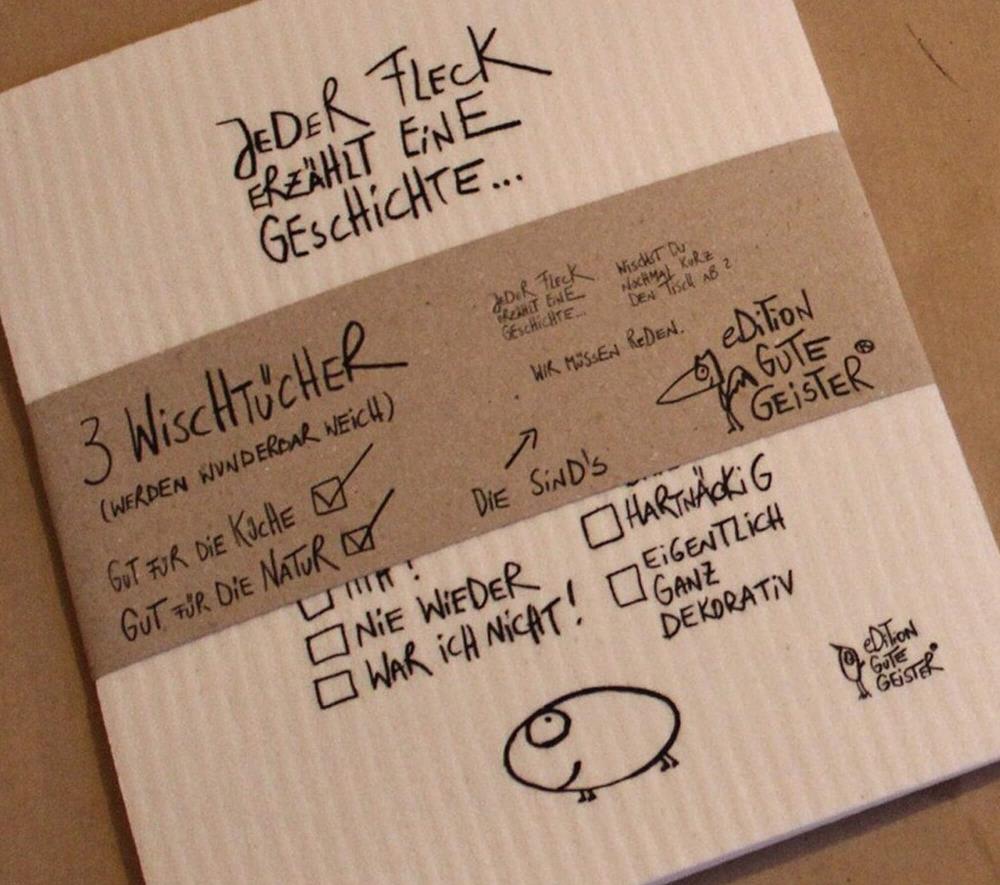 JEDER FLECK
ERZÄHLT EINE
GESCHICHTE...
JEDER FLECK
ERZÄHLT EINE
GESCHICHTE...
WISCHST DU
NOCHMAL KURZ
DEN TISCH AB?
WIR MÜSSEN REDEN.
EDITION
GUTE
GEISTER®
3 WISCHTÜCHER
(WERDEN WUNDERBAR WEICH)
GUT FÜR DIE KÜCHE
GUT FÜR DIE NATUR
DIE SIND'S
HARTNÄCKIG
EIGENTLICH
GANZ
DEKORATIV
NIE WIEDER
WAR ICH NICHT!
EDITION
GUTE
GEISTER®